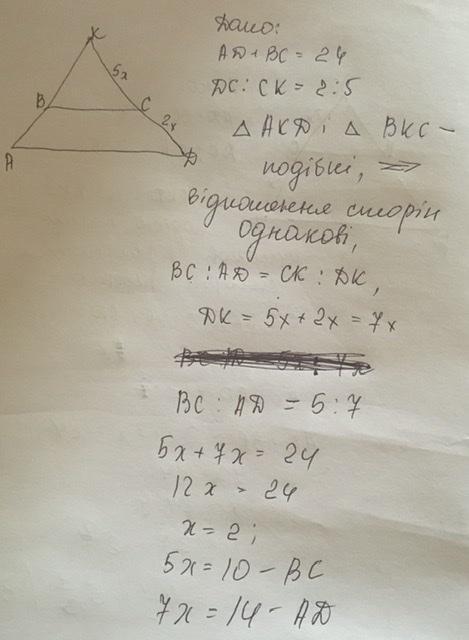 K
5x
B
C
2x
A
D
Дано:
AD+BC = 24
DC : CK = 2:5
△ AKD і △ BKC –
подібні, ⟹
відношення сторін
однакові,
BC : AD = CK : DK,
DK = 5x + 2x = 7x
BC : AD = 5 : 7
5x + 7x = 24
12x = 24
x = 2 ;
5x = 10 – BC
7x = 14 – AD